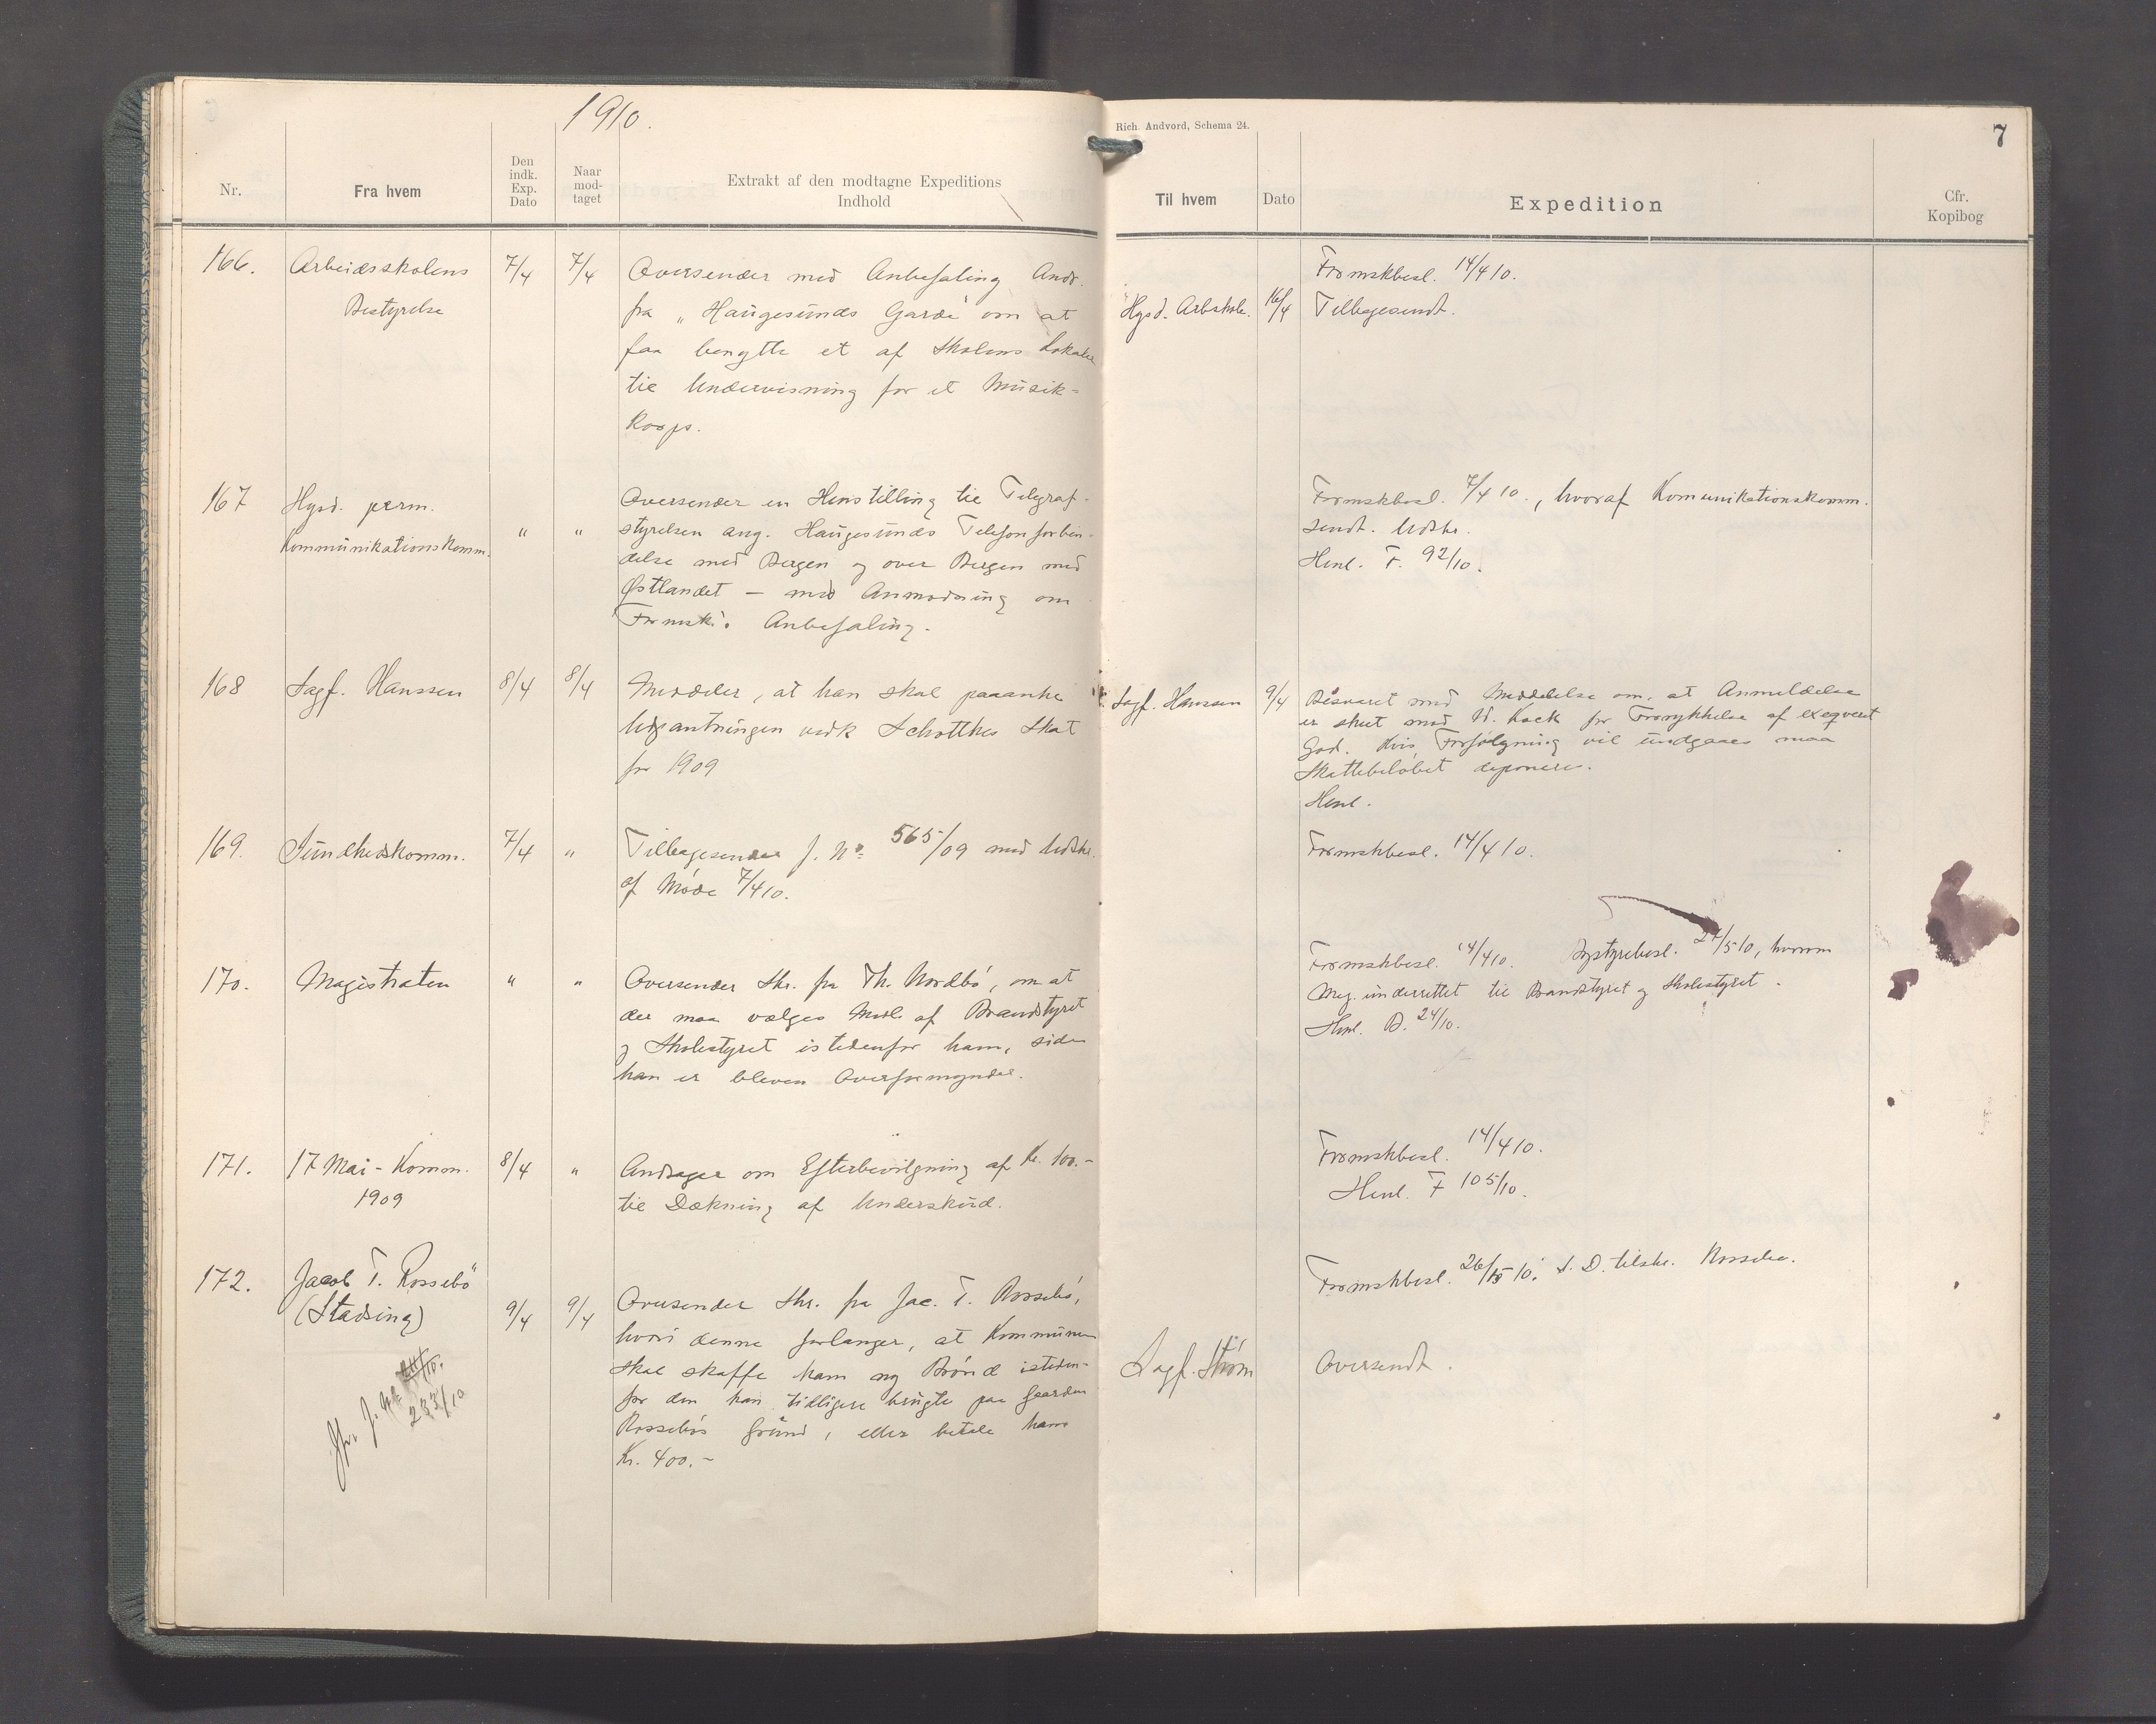 1910.
Nr.
Fra hvem
Den indk. Exp. Dato
Naar mod-taget
Extrakt af den modtagne Expeditions
Indhold
166.
Arbeidsskolens
Bestyrelse
7/4
7/4
Oversender med Anbefaling Andr.
fra „Haugesunds Garde" om at
faa benytte et af Skolens Lokaler
til Undervisning for et Musik-
Korps.
167
Hgsd. perm.
Kommunikationskomm.
"
"
Oversender en Henstilling til Telegraf-
styrelsen ang. Haugesunds Telefonforbin-
delse med Bergen og over Bergen med
Østlandet – med Anmodning om
Formsk's Anbefaling.
168
Sagf. Hanssen
8/4
8/4
Meddeler, at han skal paaanke
Udpantningen vedk Schøttkes Skat
for 1909
169.
Sundhedskomm.
7/4
"
Tilbagesender J. No. 565/09 med Udskr.
af Møde 7/4 10.
170.
Magistraten
"
"
Oversender Skr. fra Th. Nordbö, om at
der maa vælges Medl. af Brandstyret
og Skolestyret istedenfor ham, siden
han er bleven Overformynder.
171.
17 Mai-Komm.
1909
8/4
"
Andrager om Efterbevilgning af Kr. 100.-
til Dækning af Underskud.
172.
Jacob T. Rossebö
(Stadsing)
9/4
9/4
Oversender Skr. fra Jac. T. Rossebö,
hvori denne forlanger, at Kommunen
skal skaffe ham ny Brønd isteden-
for den han tidligere brugte paa Gaarden
Rossebös Grund, eller betale ham
Kr. 400.-
Jfr. J. No
233/10
Rich. Andvord, Schema 24.
7
Til hvem
Dato
Expedition
Cfr.
Kopibog
Formskbesl. 14/4 10.
Hgsd. Arbskole.
16/4
Tilbagesendt.
Formskbesl. 7/4 10., hvoraf Komunikationskomm.
sendt. Udskr.
Henl. F. 92/10.
Sagf. Hanssen
9/4
Besvaret med Meddelelse om, at Anmeldelse
er skeet mod W. Kock for Forrykkelse af exeqveret
God. Hvis Forfølgning vil undgaaes maa
Skattebeløbet deponeres.
Henl.
Formskbesl. 14/4 10.
Formskbesl. 14/4 10. Bystyrebesl. 27/5 10, hvorom
Mag. underrettet til Brandstyret og Skolestyret.
Henl. B. 24/10.
Formskbesl. 14/4 10.
Henl. F 105/10.
Formskbesl. 26/5 10. S. D. tilskr. Rossebø.
Sagf. Strøm
Oversendt.